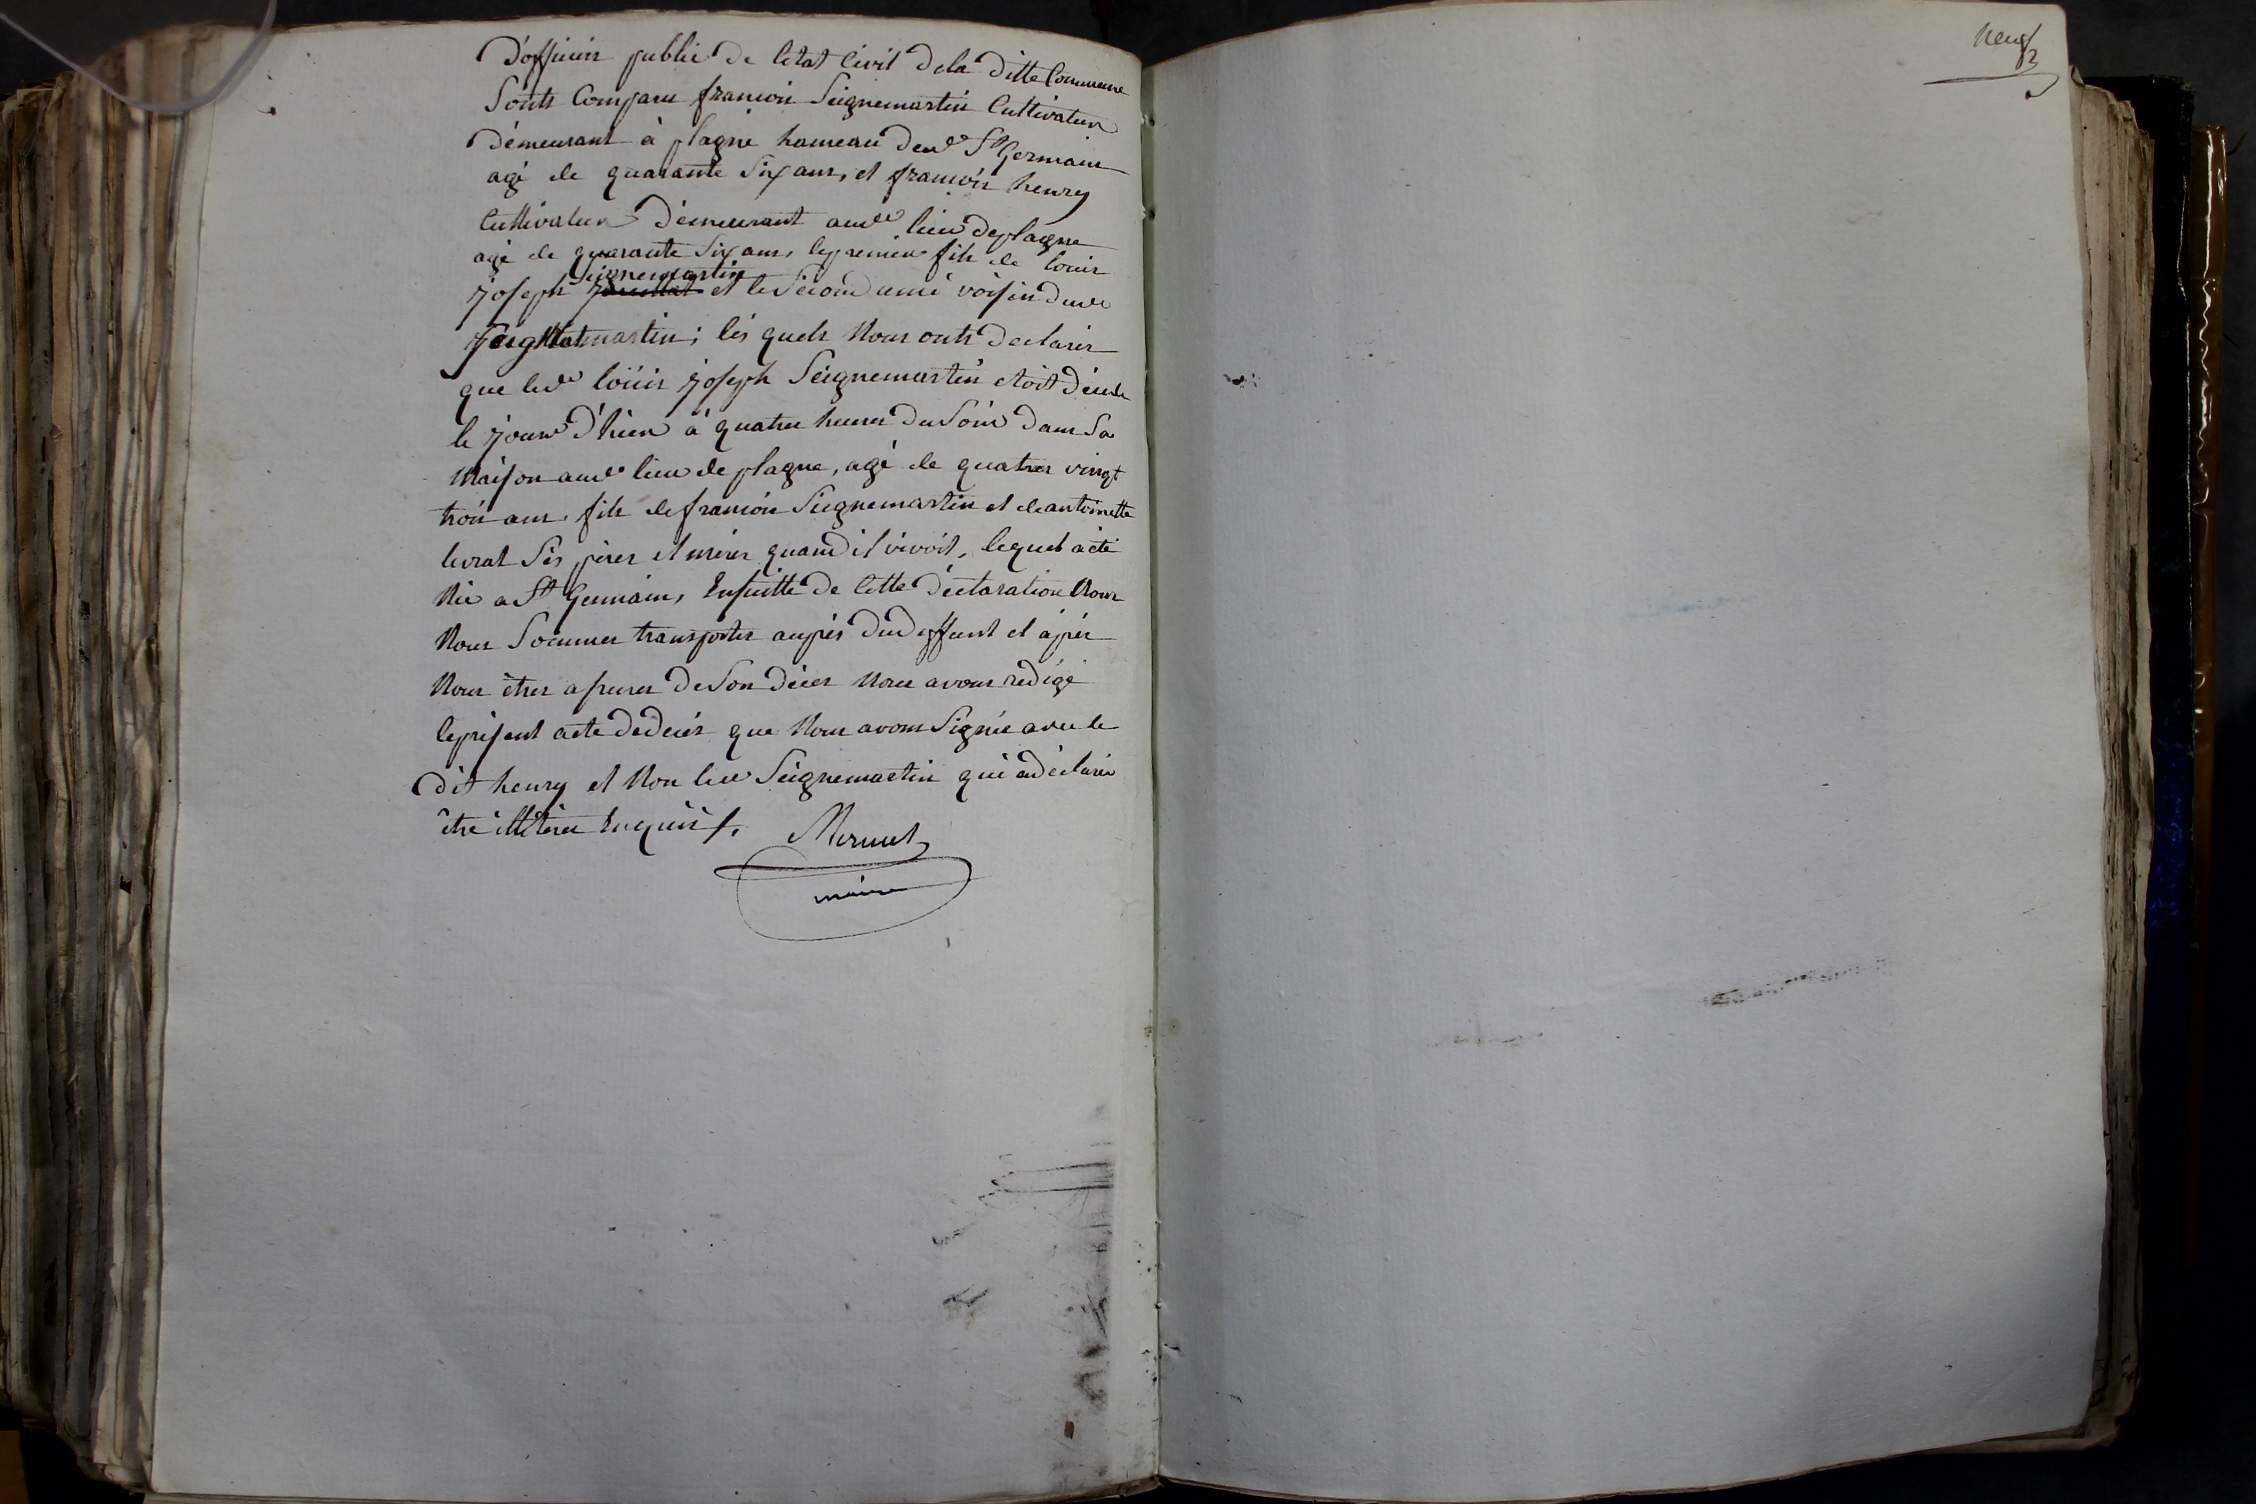 D'officier public de letat Civil dela ditte Commune
Sonts Comparu francois Seignemartin Cultivateur
démeurant à plagne hameau dud. St Germain
agé de quarante Six ans, et francois henry
Cultivateur démeurant aud. lieu deplagne
agé de quarante Six ans, lepremier fils de louis
Seignemartin
joseph et le Second ami voisin dud.
martin; lés quels Nous onts declarér
que led. loüis joseph Séignemartin etoit décédé
le jour d'hier à quatre heures du Soir dans Sa
Maison aud. lieu de plagne, agé de quatres vingt
trois ans, fils de francois Seignemartin et de antoinette
levrat Sés péres et méres quand il vivoit, lequel à été
Née a St Germain, Ensuitte de Cette déclaration Nous
Nous Sommes transportés auprés dud deffunt et aprés
Nous étres assurer de Son décés Nous avons redigé
leprésent acte dedecés que Nous avons Signée avec le
dit henry et Non led. Seignemartin qui a déclaré
étre illiterée Enquis /.
Mermet
maire
Neuf